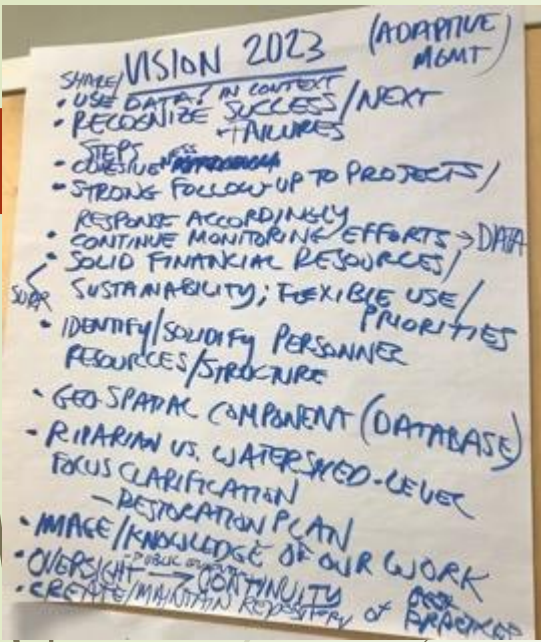 VISION 2023 (ADAPTIVE MGMT)
• SHARE/USE DATA! IN CONTEXT
• RECOGNIZE SUCCESS/NEXT
STEPS + FAILURES
• COHESIVENESS
• STRONG FOLLOW-UP TO PROJECTS/
RESPONSE ACCORDINGLY
• CONTINUE MONITORING EFFORTS → DATA
• SOLID FINANCIAL RESOURCES/
SUSTAINABILITY; FLEXIBLE USE/
PRIORITIES
• IDENTIFY/SOLIDIFY PERSONNEL
RESOURCES/STRUCTURE
• GEO-SPATIAL COMPONENT (DATABASE)
• RIPARIAN VS. WATERSHED-LEVEL
FOCUS CLARIFICATION
- RESTORATION PLAN
• IMAGE/KNOWLEDGE OF OUR WORK
- PUBLIC
• OVERSIGHT → CONTINUITY
• CREATE/MAINTAIN REPOSITORY of BEST PRACTICES